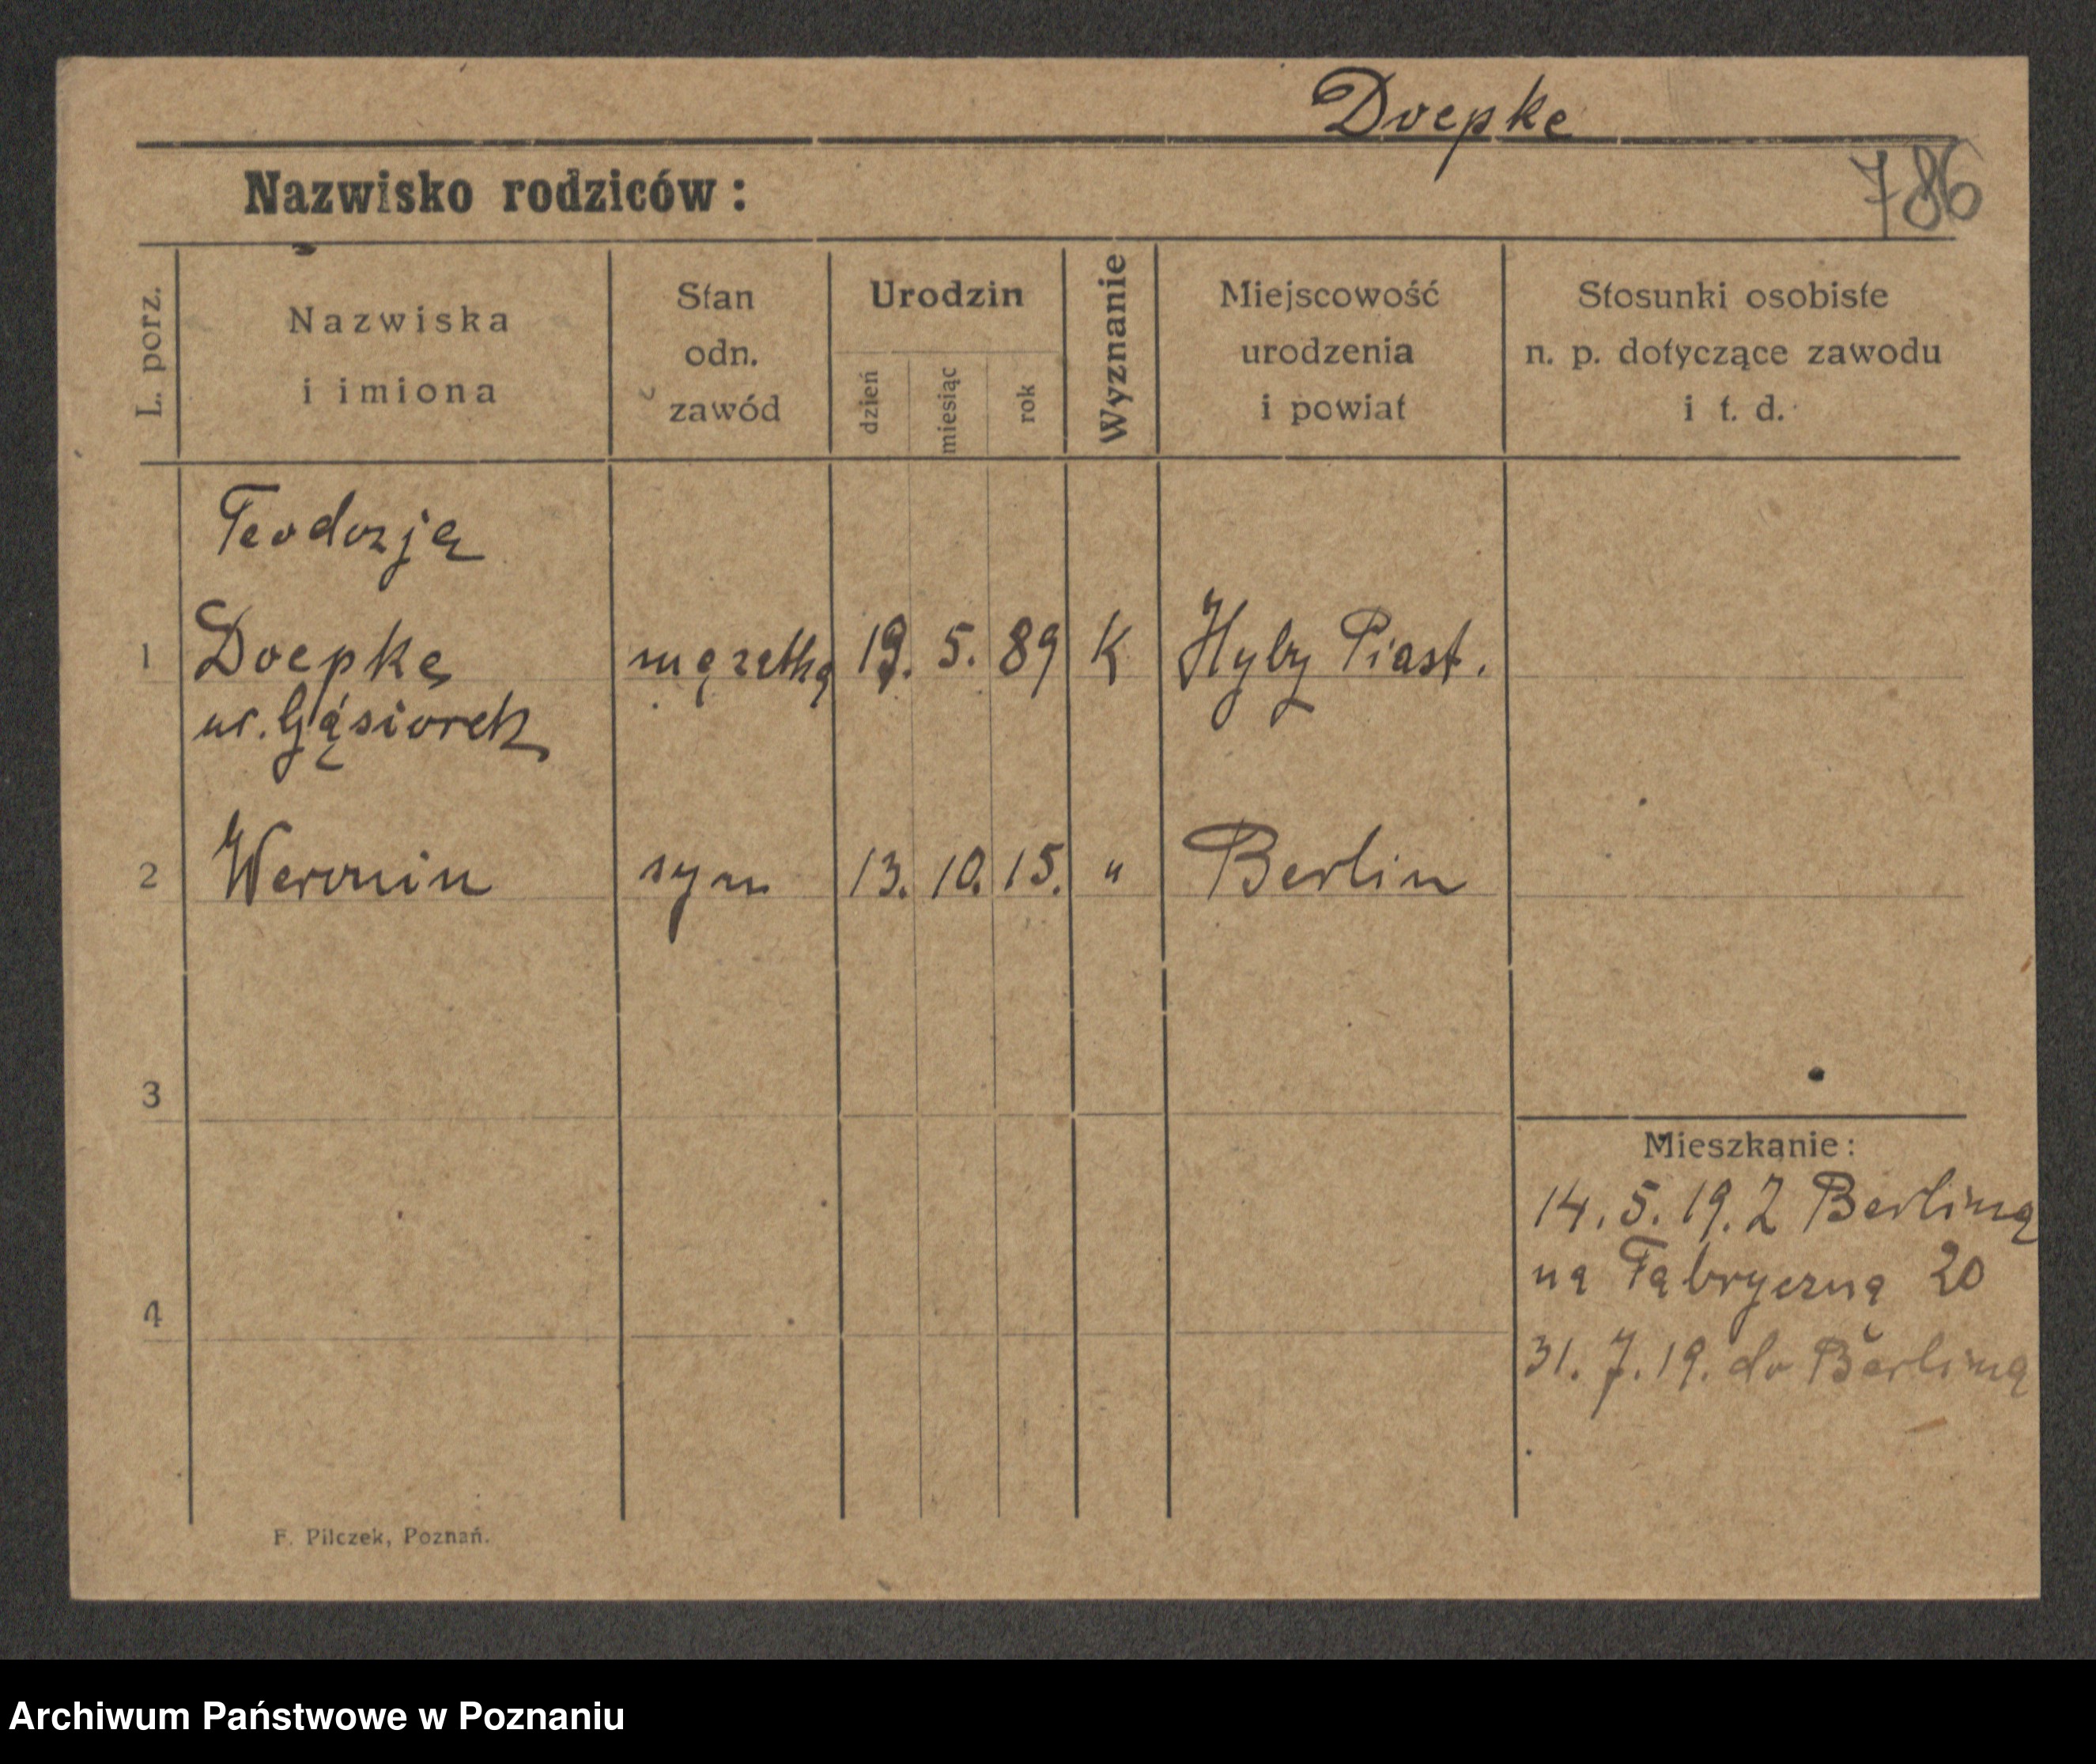 Doepke
Nazwisko rodziców:
786
L. porz.
Nazwiska
i imiona
Stan
odn.
zawód
Urodzin
dzień
miesiąc
rok
Wyznanie
Miejscowość
urodzenia
i powiat
Stosunki osobiste
n. p. dotyczące zawodu
i t. d.
Teodozja
1 Doepke mężatka 19. 5. 89 K Hyby Piast.
ur. Gąsiorek
2 Weronin syn 13. 10. 15. " Berlin
3
Mieszkanie:
14. 5. 19. Z Berlina
na Fabryczną 20
4
31. 7. 19. do Berlina
F. Pilczek, Poznań.
Archiwum Państwowe w Poznaniu